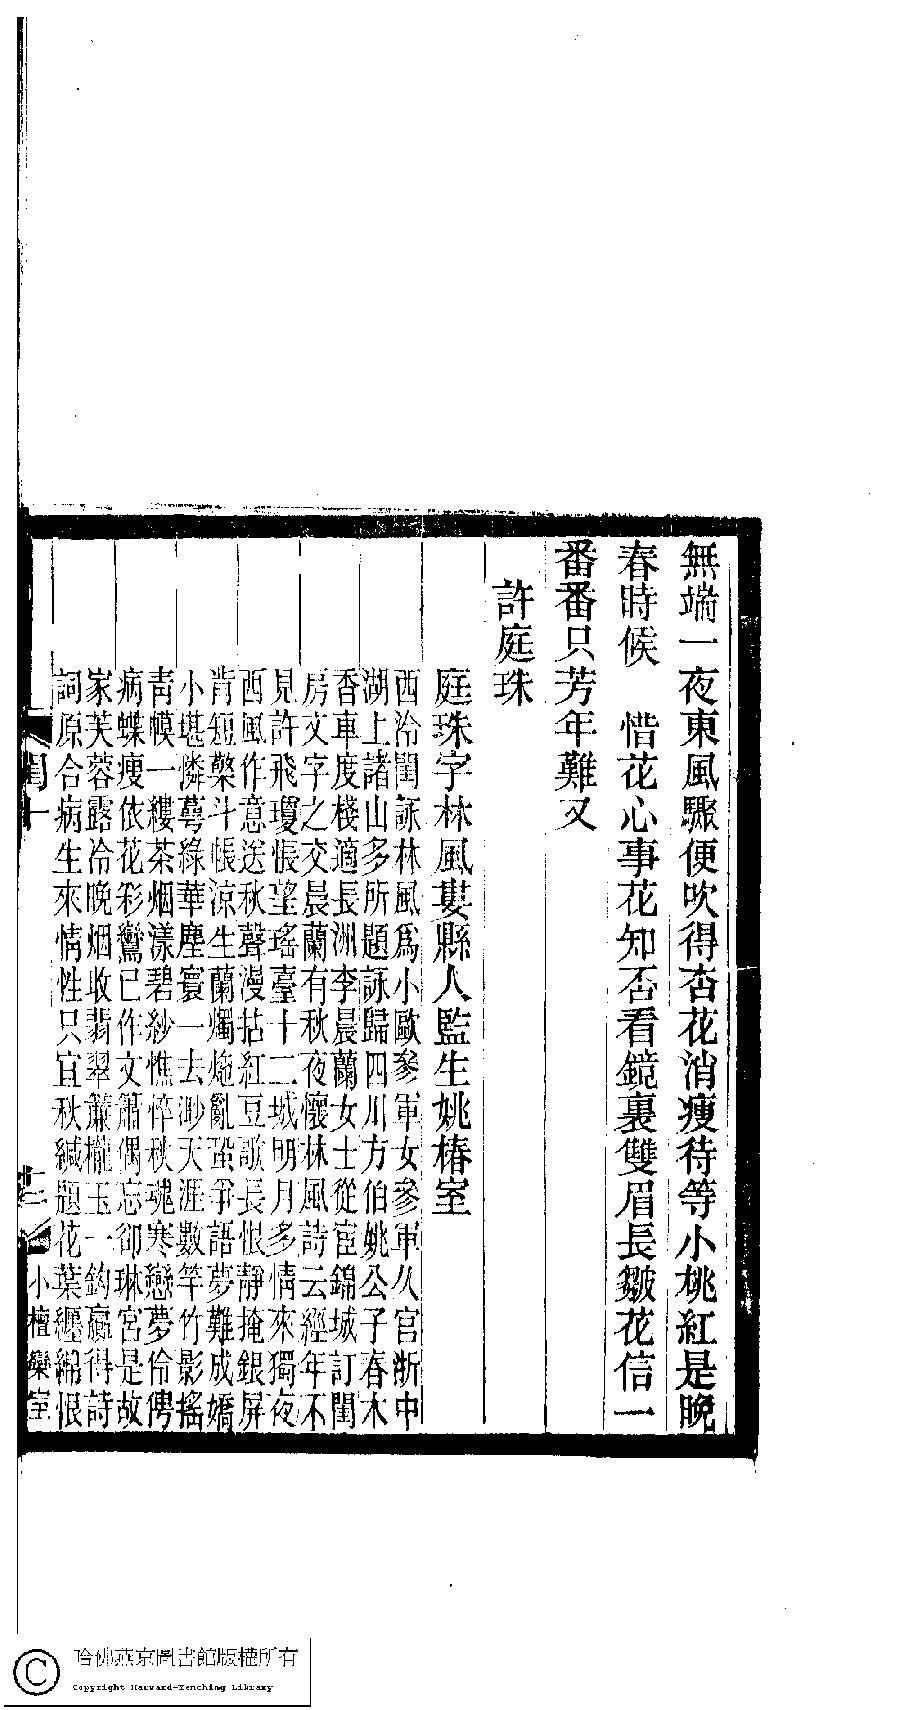 無端一夜東風驟便吹得杏花消瘦待等小桃紅是晚
春時候　惜花心事花知否看鏡裏雙眉長皺花信一
番番只芳年難又
許庭珠
庭珠字林風婁縣人監生姚椿室
西泠閨詠林風爲小歐參軍女參軍久官浙中
湖上諸山多所題詠歸四川方伯姚公子春木
香車度棧適長洲李晨蘭女士從宦錦城訂閨
房文字之交晨蘭有秋夜懷林風詩云經年不
見許飛瓊悵望瑤臺十二城明月多情來獨夜
西風作意送秋聲漫拈紅豆歌長恨靜掩銀屏
背短檠斗帳涼生蘭燭灺亂蛩爭語夢難成嬌
小堪憐萼綠華塵寰一去渺天涯數竿竹影搖
青幌一縷茶烟漾碧紗憔悴秋魂寒戀夢伶俜
病蝶瘦依花彩鸞已作文簫偶忘卻琳宮是故
家芙蓉露冷晚烟收翡翠簾櫳玉一鉤贏得詩
詞原合病生來情性只宜秋緘題花葉纏綿恨
閨十
十二
小檀欒室
哈佛燕京圖書館版權所有
Copyright Harvard-Yenching Library